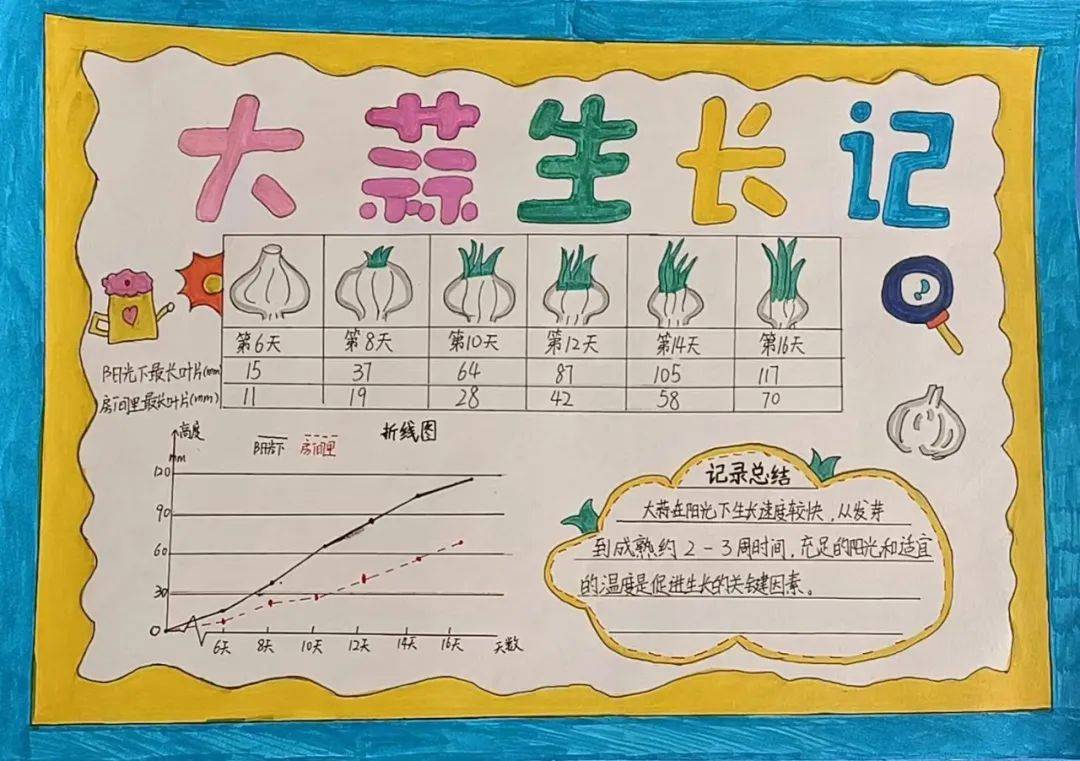 大蒜生长记
第6天 第8天 第10天 第12天 第14天 第16天
阳光下最长叶片(mm) 15 37 64 87 105 117
房间里最长叶片(mm) 11 19 28 42 58 70
折线图
高度
mm
阳光下 房间里
120
90
60
30
0
6天 8天 10天 12天 14天 16天 天数
记录总结
大蒜在阳光下生长速度较快,从发芽
到成熟约2-3周时间,充足的阳光和适宜
的温度是促进生长的关键因素。